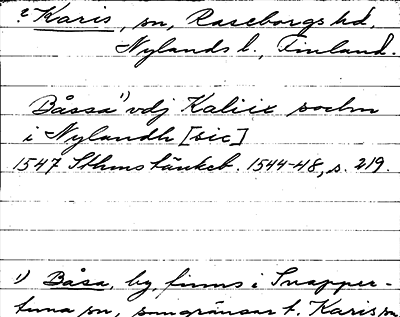 ? Karis, sn, Raseborgs hd,
Nylands l., Finland.
Båssa¹⁾ vdj Kaliix sochn
i Nylandh [sic]
1547 Sthms tänkeb. 1544-48, s. 219.
1) Båsa, by, finns i Snapper-
tuna sn, som gränsar t. Karis sn